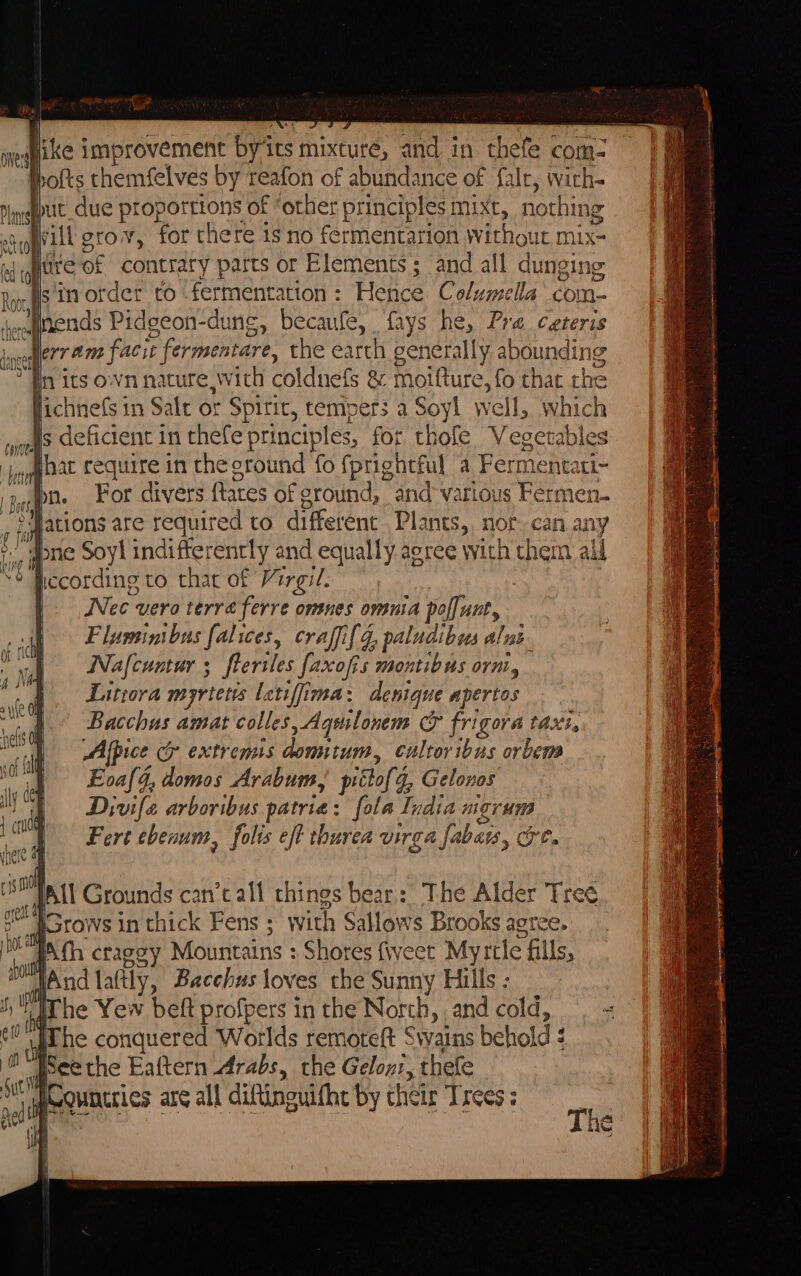 like improvement by its mixture, and in theſe com-
poſts themſelves by reaſon of abundance of ſalt, with-
out due proportions of other principles mixt, nothing
will grow, for there is no fermentation without mix-
ture of contrary parts or Elements; and all dunging
is in order to fermentation: Hence Columella com-
mends Pidgeon-dung, becauſe, ſays he, Præ cæteris
terram facit fermentare, the earth generally abounding
in its own nature with coldneſs & moiſture, ſo that the
richneſs in Salt or Spirit, tempers a Soyl well, which
is deficient in theſe principles, for thoſe Vegetables
that require in the ground ſo ſprightful a Fermentati-
on. For divers ſtates of ground, and various Fermen-
tations are required to different Plants, nor can any
one Soyl indifferently and equally agree with them all
according to that of Virgil.
Nec vero terræ ferre omnes omnia poſſunt,
Fluminibus ſalices, craſſiſq; paludibus alni
Naſcuntur; ſteriles ſaxoſis montibus orni,
Littora myrtetis letiſſima: denique apertos
Bacchus amat colles, Aquilonem & frigora taxi,
Aſpice & extremis domitum, cultoribus orbem
Eoaſq; domos Arabum, pictoſq; Gelonos
Diviſæ arboribus patriæ: ſola India nigrum
Fert ebenum, ſolis eſt thurea virga ſabæis, &c.
All Grounds can't all things bear: The Alder Tree
Grows in thick Fens; with Sallows Brooks agree.
Aſh craggy Mountains: Shores ſweet Myrtle fills,
And laſtly, Bacchus loves the Sunny Hills:
The Yew beſt proſpers in the North, and cold,
The conquered Worlds remoteſt Swains behold:
See the Eaſtern Arabs, the Geloni, theſe
Countries are all diſtinguiſht by their Trees:
The